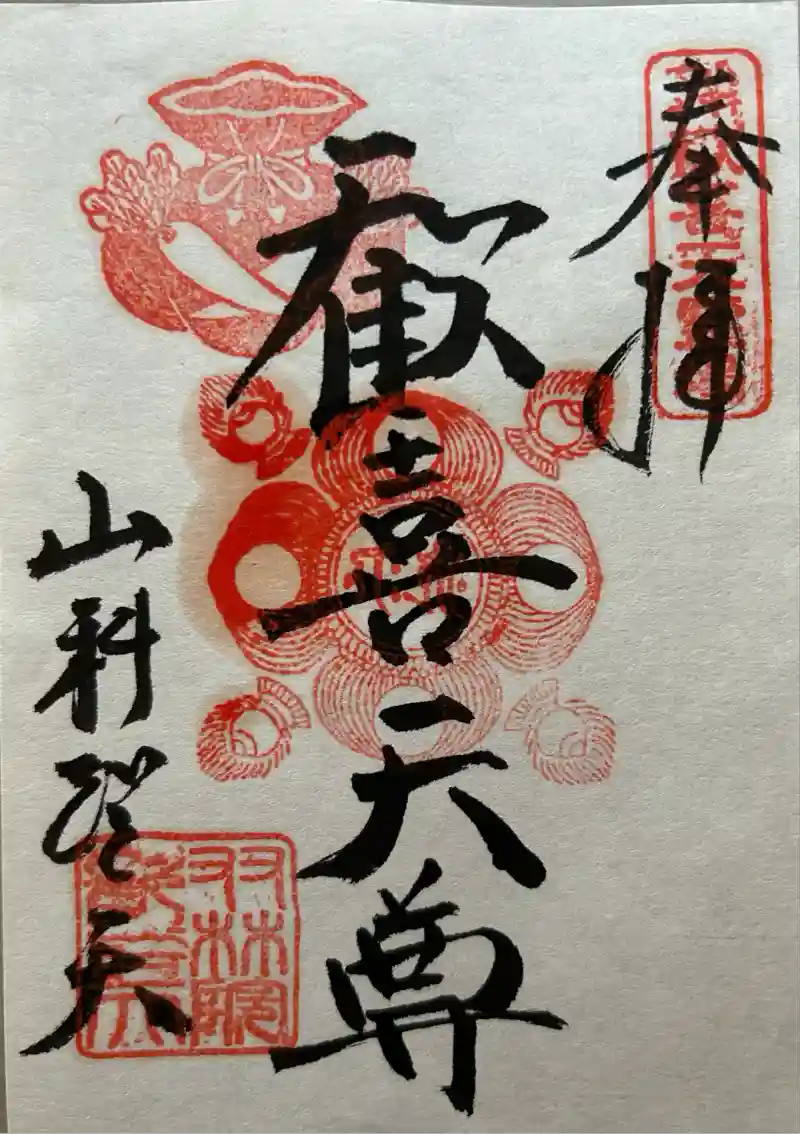 奉拝
歓喜天尊
山科聖天
双林院